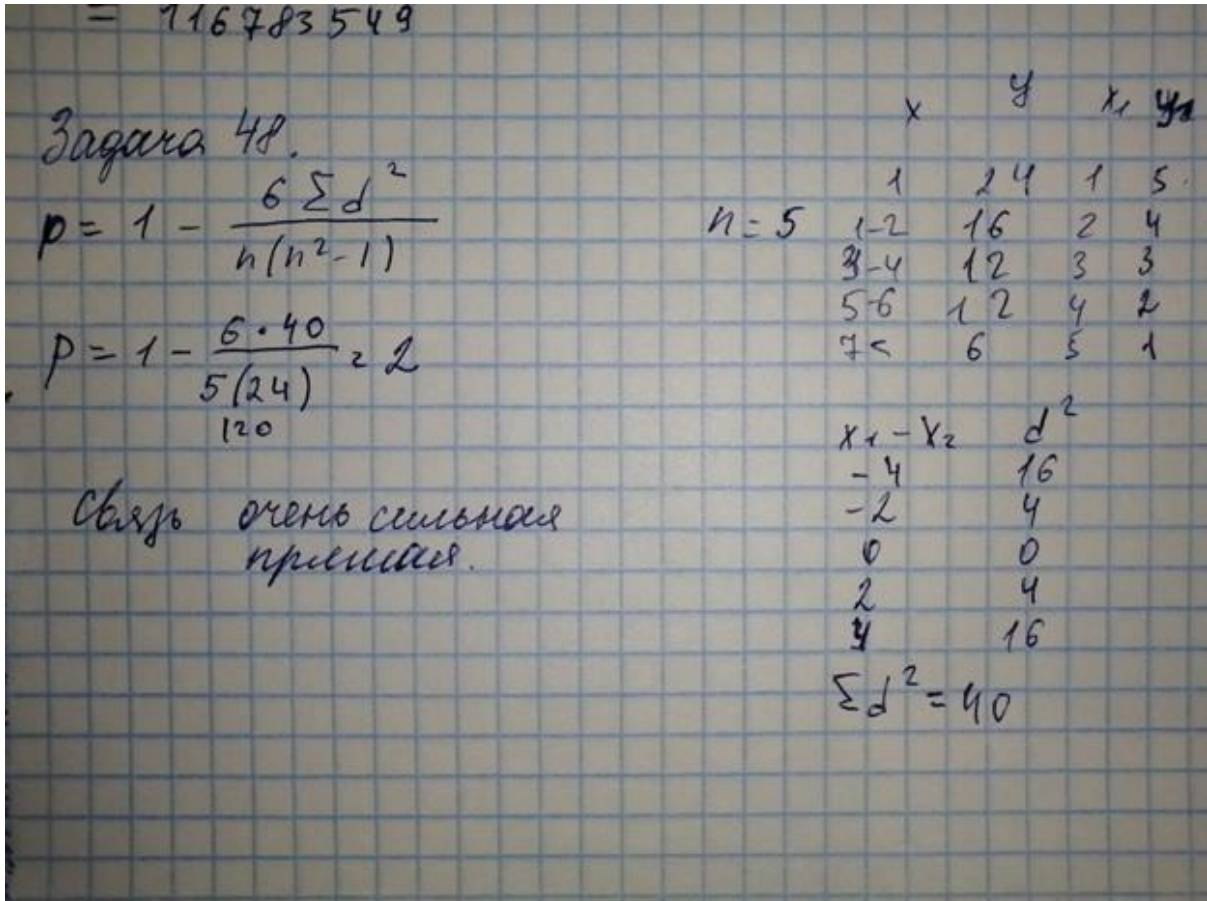 = 116783549
Задача 48.
p = 1 - 6 Σd² / n(n²-1)
P = 1 - 6·40 / 5(24) = 2
120
Связь очень сильная
прямая.
x y x₁ y₁
1 24 1 5
n = 5 1-2 16 2 4
3-4 12 3 3
5-6 12 4 2
7< 6 5 1
x₁ - x₂ d²
-4 16
-2 4
0 0
2 4
4 16
Σd² = 40